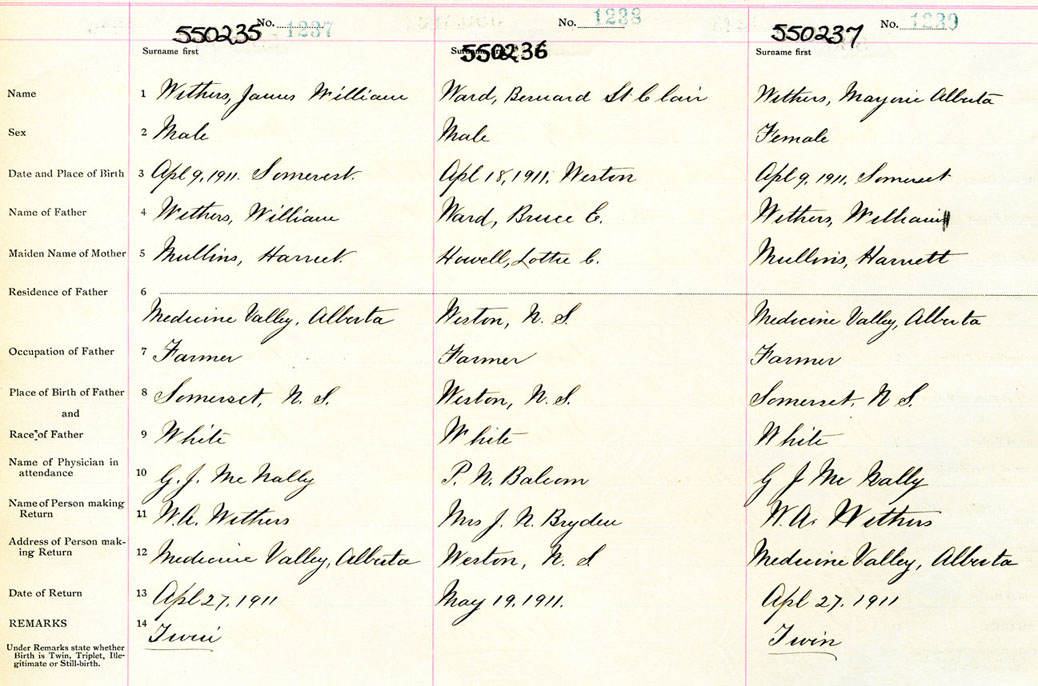 No. 1237 No. 1238 No. 1239
550235 550236 550237
Surname first Surname first Surname first
Name 1 Withers, James William Ward, Bernard St Clair Withers, Marjorie Alberta
Sex 2 Male Male Female
Date and Place of Birth 3 Apl 9, 1911. Somerset. Apl 18, 1911, Weston Apl 9, 1911, Somerset
Name of Father 4 Withers, William Ward, Bruce E. Withers, William
Maiden Name of Mother 5 Mullins, Harriet. Howell, Lottie C. Mullins, Harriett
Residence of Father 6
Medicine Valley, Alberta Weston, N. S. Medicine Valley, Alberta
Occupation of Father 7 Farmer Farmer Farmer
Place of Birth of Father 8 Somerset, N. S. Weston, N. S. Somerset, N S.
and
Race of Father 9 White White White
Name of Physician in
attendance 10 G. J. McNally P. N. Balcom G J McNally
Name of Person making
Return 11 W. A. Withers Mrs J. N. Bryden W. A. Withers
Address of Person mak-
ing Return 12 Medicine Valley, Alberta Weston, N. S Medicine Valley, Alberta
Date of Return 13 Apl 27, 1911 May 19, 1911. Apl 27, 1911
REMARKS 14 Twin Twin
Under Remarks state whether
Birth is Twin, Triplet, Ille-
gitimate or Still-birth.